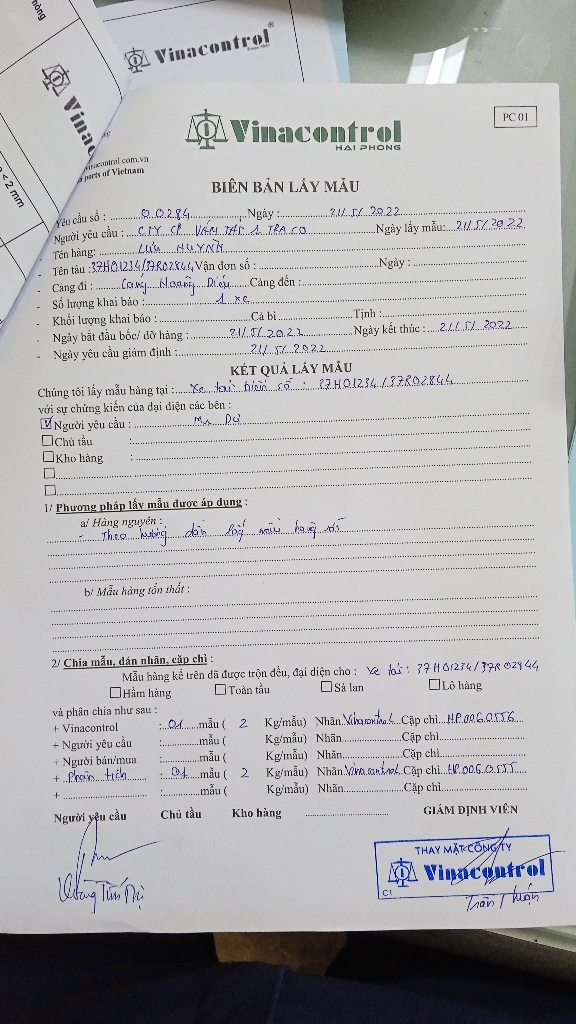 Vinacontrol
Vinac
< 2 mm
vinacontrol.com.vn
parts of Vietnam
PC 01
Vinacontrol
HAI PHONG
BIÊN BẢN LẤY MẪU
Yêu cầu số : 00284 Ngày : 21/5/2022
Người yêu cầu : CTY CP VẬN TẢI 1 TRACO Ngày lấy mẫu: 21/5/2022
- Tên hàng: LƯU HUỲNH
- Tên tàu : 37H01234/37R02844 Vận đơn số : Ngày :
- Cảng đi : Cảng Hoàng Diệu Cảng đến :
- Số lượng khai báo : 1 xe
- Khối lượng khai báo : Cả bì Tịnh :
- Ngày bắt đầu bốc/ dỡ hàng : 21/5/2022 Ngày kết thúc : 21/5/2022
- Ngày yêu cầu giám định : 21/5/2022
KẾT QUẢ LẤY MẪU
Chúng tôi lấy mẫu hàng tại : Xe tải biển số : 37H01234/37R02844
với sự chứng kiến của đại diện các bên :
Người yêu cầu : Mr Dự
Chủ tầu :
Kho hàng :
1/ Phương pháp lấy mẫu được áp dụng :
a/ Hàng nguyên :
- Theo hướng dẫn lấy mẫu hàng rời
b/ Mẫu hàng tổn thất :
2/ Chia mẫu, dán nhãn, cặp chì :
Mẫu hàng kể trên đã được trộn đều, đại diện cho : Xe tải : 37H01234/37R02944
Hầm hàng Toàn tầu Sà lan Lô hàng
và phân chia như sau :
+ Vinacontrol : 01 mẫu ( 2 Kg/mẫu) Nhãn Vinacontrol Cặp chì HP.006.0556
+ Người yêu cầu : mẫu ( Kg/mẫu) Nhãn Cặp chì
+ Người bán/mua : mẫu ( Kg/mẫu) Nhãn Cặp chì
+ Phân tích : 01 mẫu ( 2 Kg/mẫu) Nhãn Vinacontrol Cặp chì HP.006.0555
+ : mẫu ( Kg/mẫu) Nhãn Cặp chì
Người yêu cầu Chủ tầu Kho hàng GIÁM ĐỊNH VIÊN
THAY MẶT CÔNG TY
Vinacontrol
C1
Trần Thuận